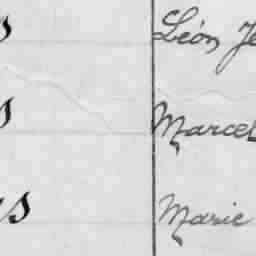 s Léon Je
s Marcel
s Marie